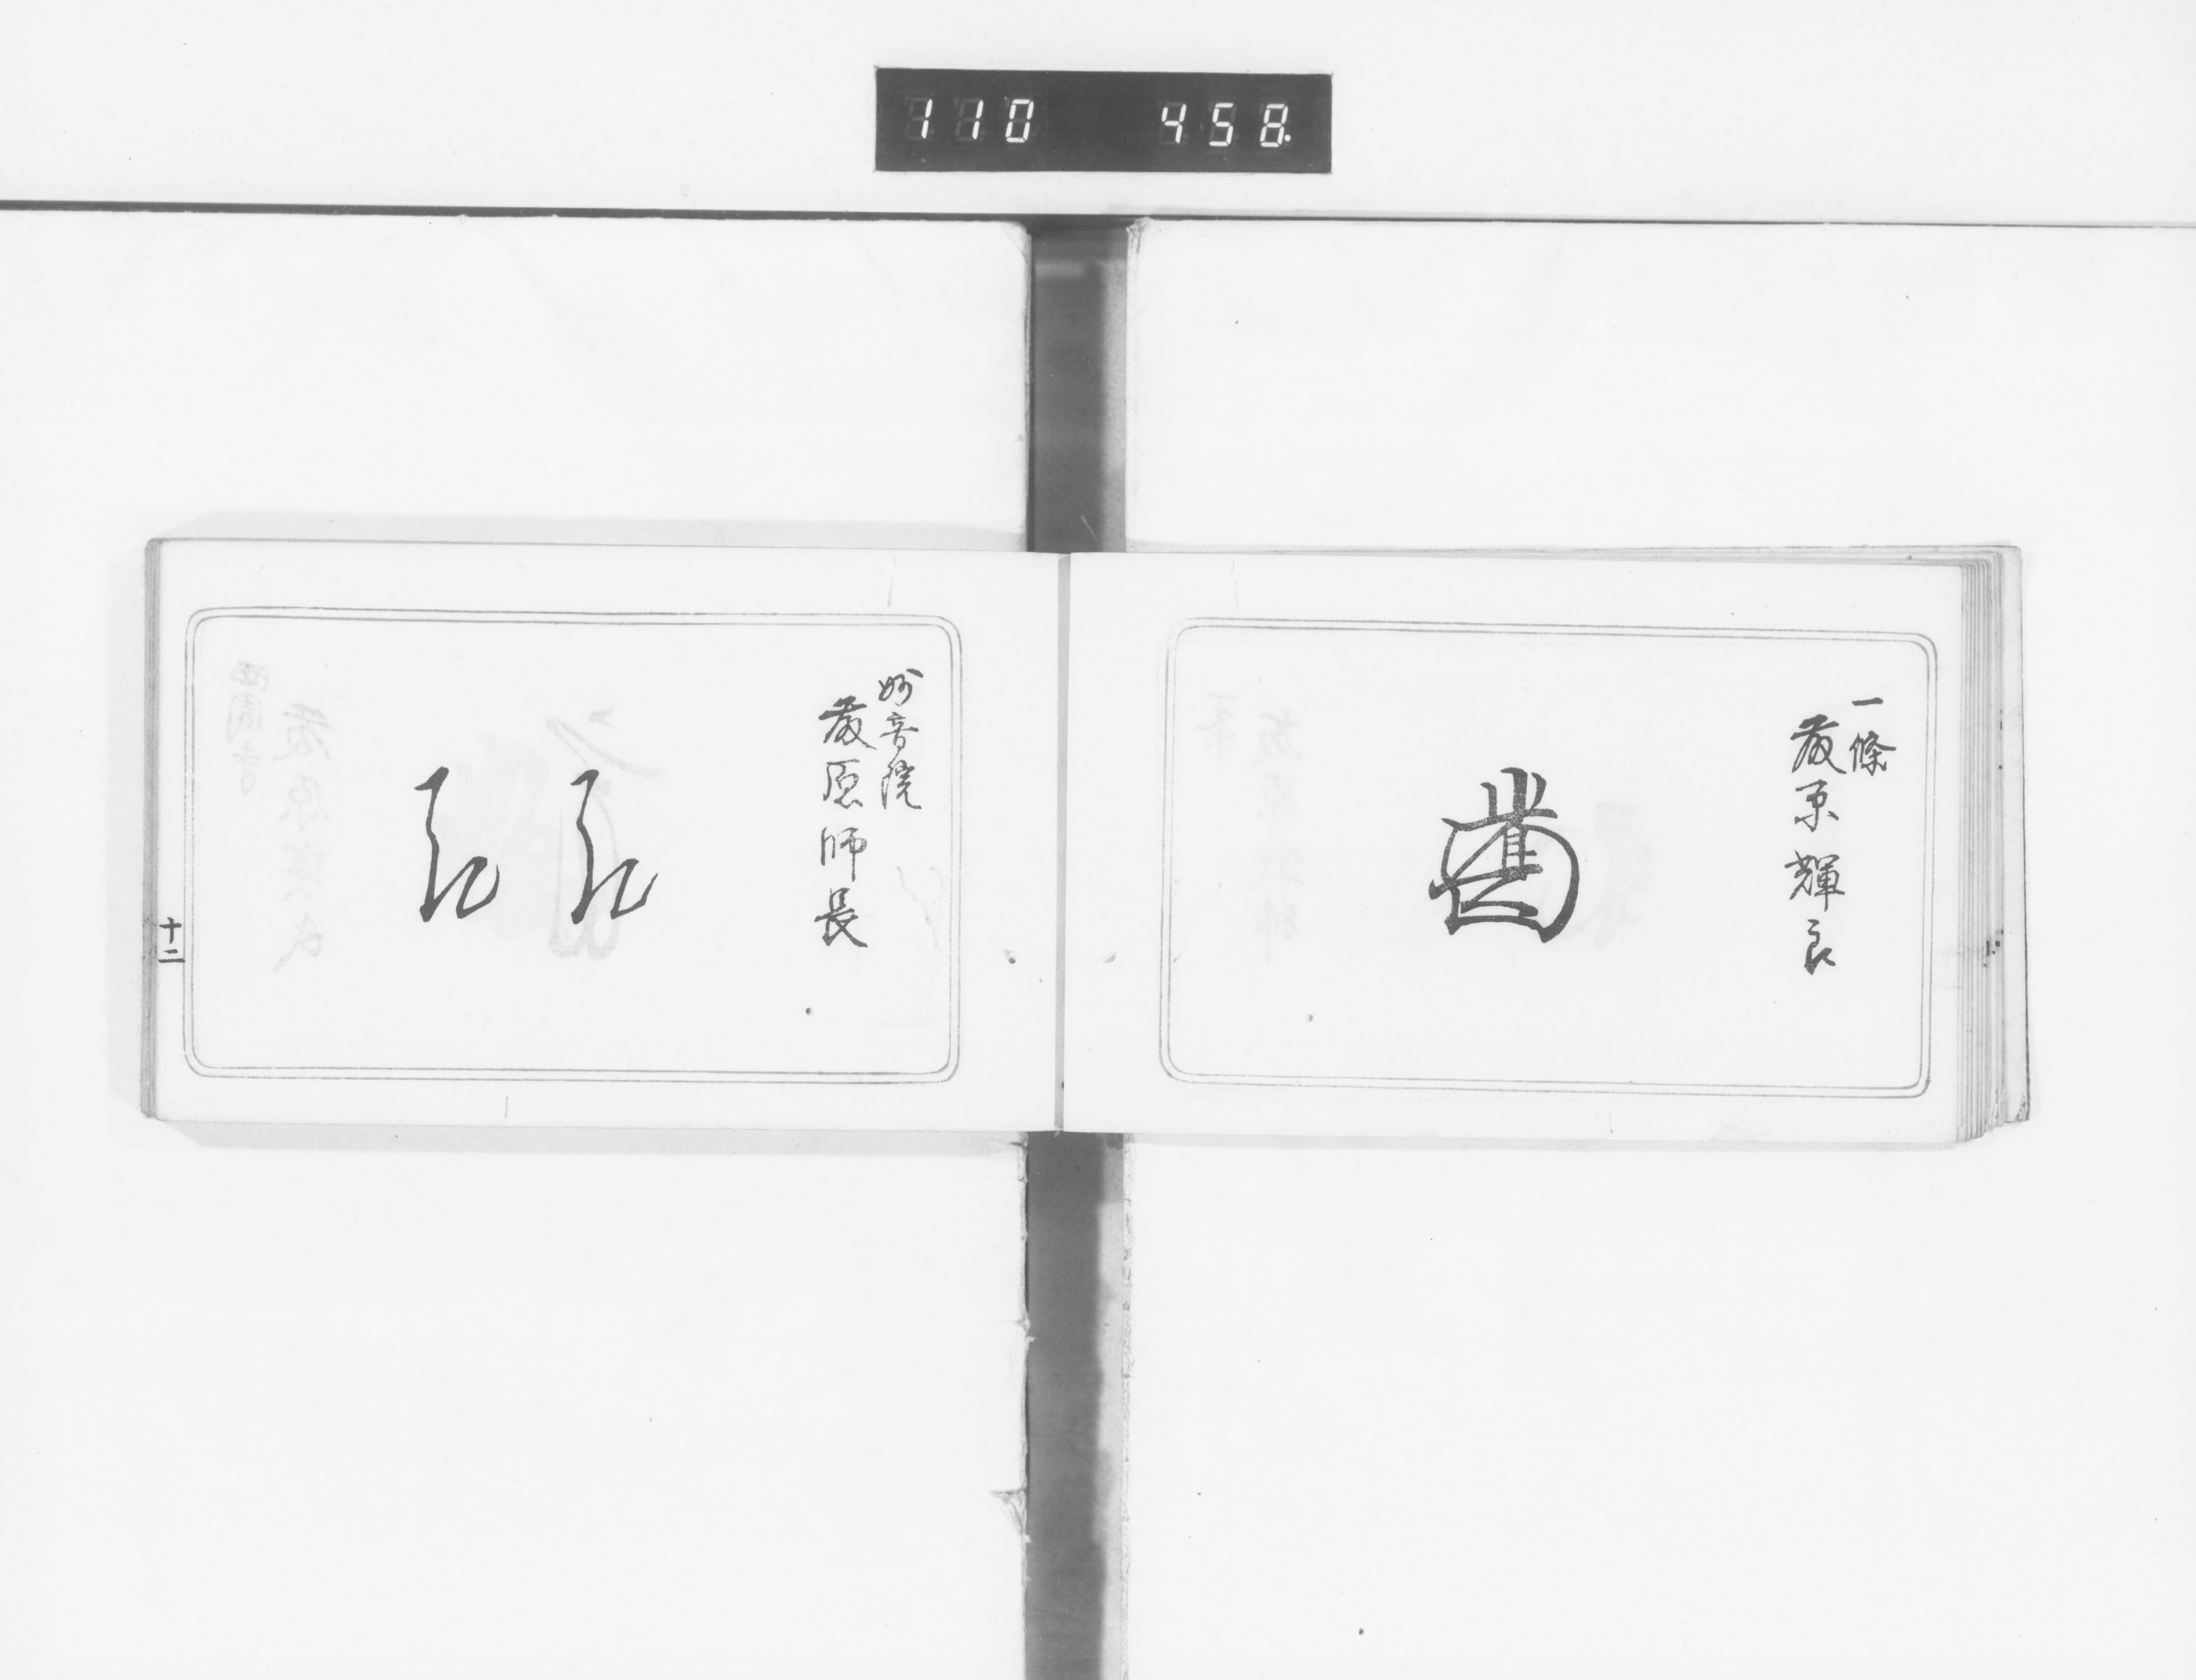 110 458
一條
藤原輝良
妙音院
藤原師長
十二